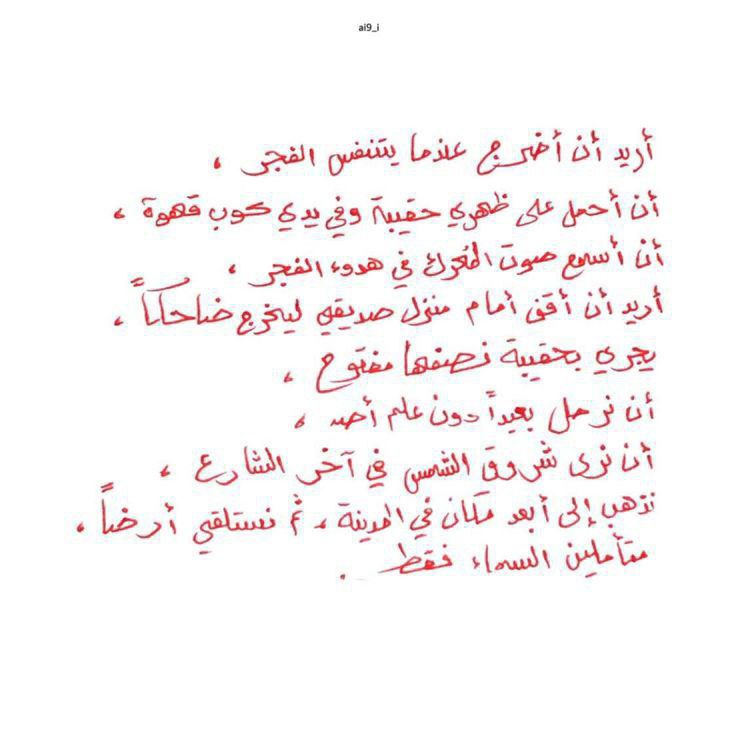 ai9_i
أريد أن أخرج عندما يتنفس الفجر ،
أن أحمل على ظهري حقيبة وفي يدي كوب قهوة ،
أن أسمع صوت المُحرك في هدوء الفجر ،
أريد أن أقف أمام منزل صديقي ليخرج ضاحكاً ،
يجري بحقيبة نصفها مفتوح ،
أن نرحل بعيداً دون علم أحد ،
أن نرى شروق الشمس في آخر الشارع ،
نذهب إلى أبعد مكان في المدينة ، ثم نستلقي أرضاً ،
متأملين السماء فقط .